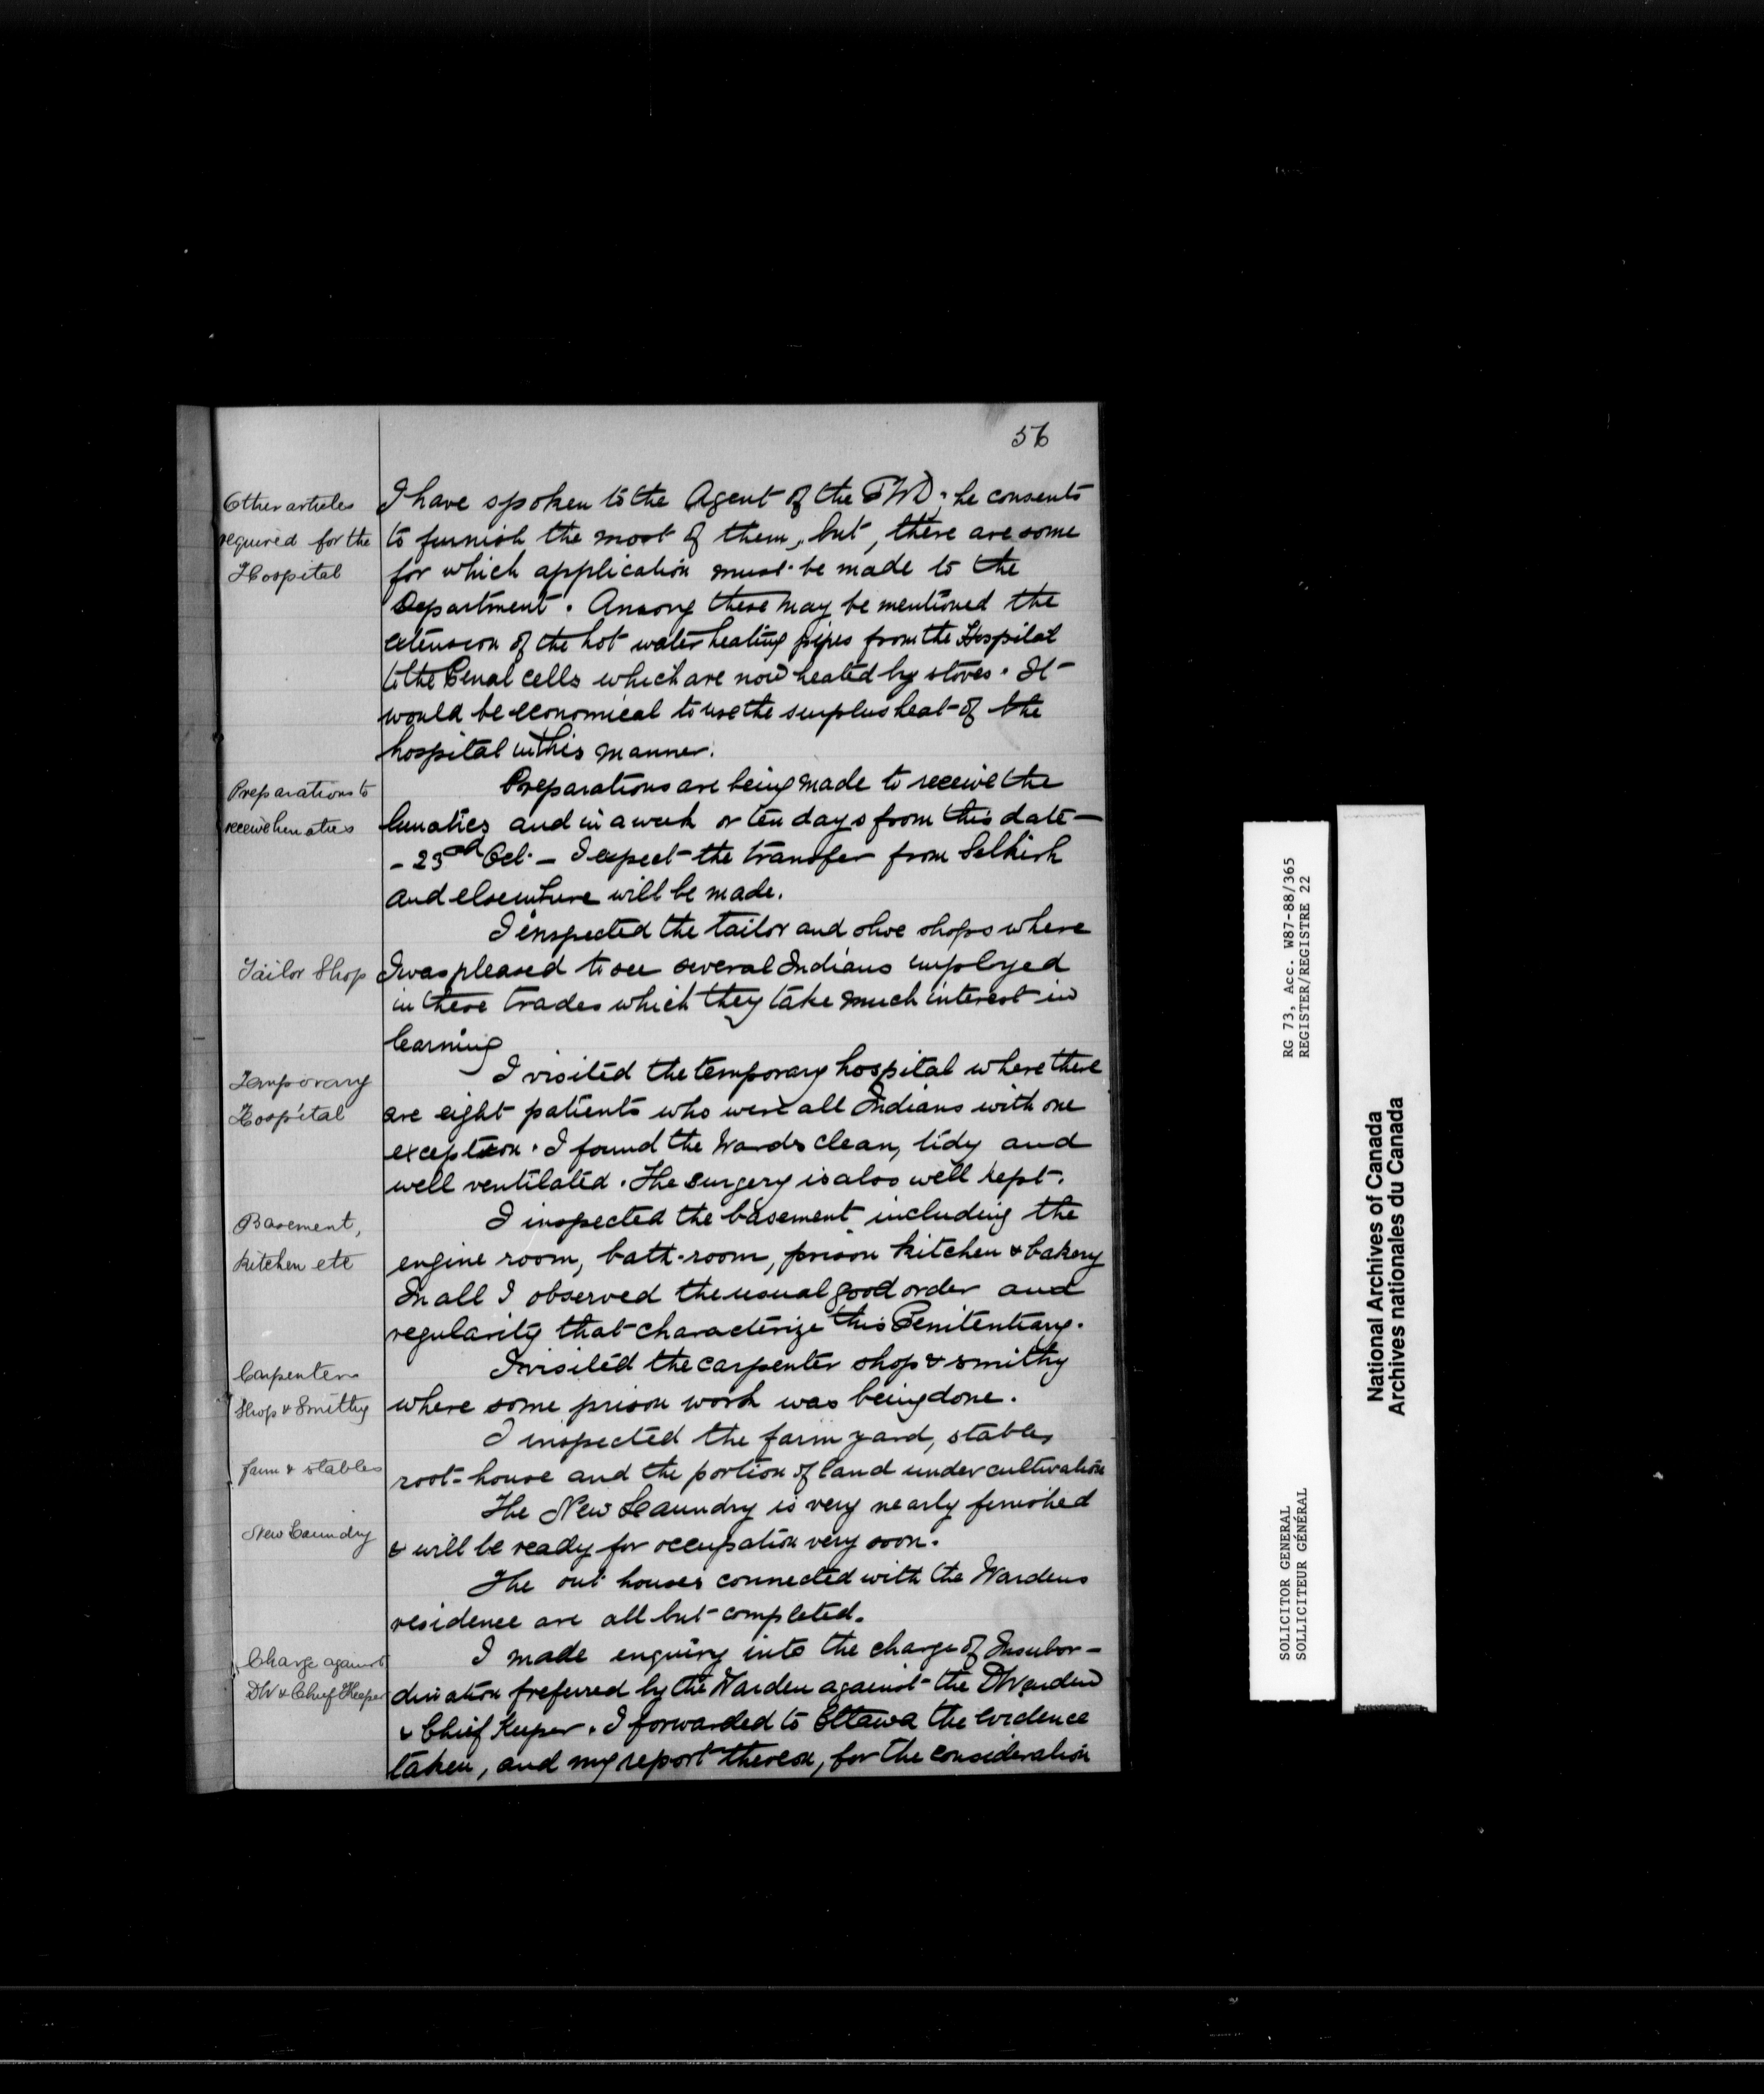 56
Other articles
required for the
Hospital
I have spoken to the Agent of the PWD; he consents
to furnish the most of them, but, there are some
for which application must be made to the
Department. Among these may be mentioned the
extension of the hot water heating pipes from the Hospital
to the Penal cells which are now heated by stoves. It
would be economical to use the surplus heat of the
hospital in this manner.
Preparations to
receive lunatics
Preparations are being made to receive the
lunatics and in a week or ten days from this date —
– 23rd Oct. – I expect the transfer from Selkirk
and elsewhere will be made.
Tailor Shop
I inspected the tailor and shoe shops where
I was pleased to see several Indians employed
in these trades which they take much interest in
learning
Temporary
Hospital
I visited the temporary hospital where there
are eight patients who were all Indians with one
exception. I found the wards clean, tidy and
well ventilated. The surgery is also well kept.
Basement,
kitchen etc
I inspected the basement including the
engine room, bath-room, prison kitchen & bakery
In all I observed the usual good order and
regularity that characterize this Penitentiary.
Carpenters
Shop & Smithy
I visited the carpenter shop & smithy
where some prison work was being done.
farm & stables
I inspected the farm yard, stables,
root-house and the portion of land under cultivation
New Laundry
The New Laundry is very nearly finished
& will be ready for occupation very soon.
The out houses connected with the Wardens
residence are all but completed.
Charge against
DW & Chief Keeper
I made enquiry into the charge of Insubor-
dination preferred by the Warden against the DWarden
& Chief Keeper. I forwarded to Ottawa the evidence
taken, and my report thereon, for the consideration
RG 73, Acc. W87-88/365
REGISTER/REGISTRE 22
SOLICITOR GENERAL
SOLLICITEUR GÉNÉRAL
National Archives of Canada
Archives nationales du Canada